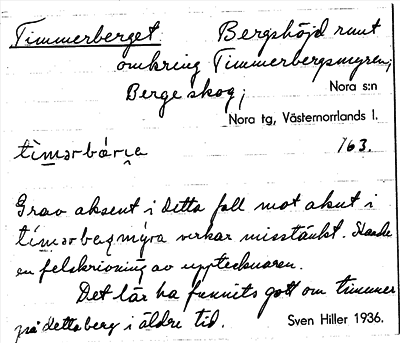 Timmerberget Bergshöjd runt
omkring Timmerbergsmyren;
Berge skog; Nora s:n
Nora tg, Västernorrlands l.
tìmərbár̯a 163.
Grav aksent i detta fall mot akut i
tímərbeqmýra verkar misstänkt. Skulle
en felskrivning av upptecknaren.
Det lär ha funnits gott om timmer
på detta berg i äldre tid. Sven Hiller 1936.